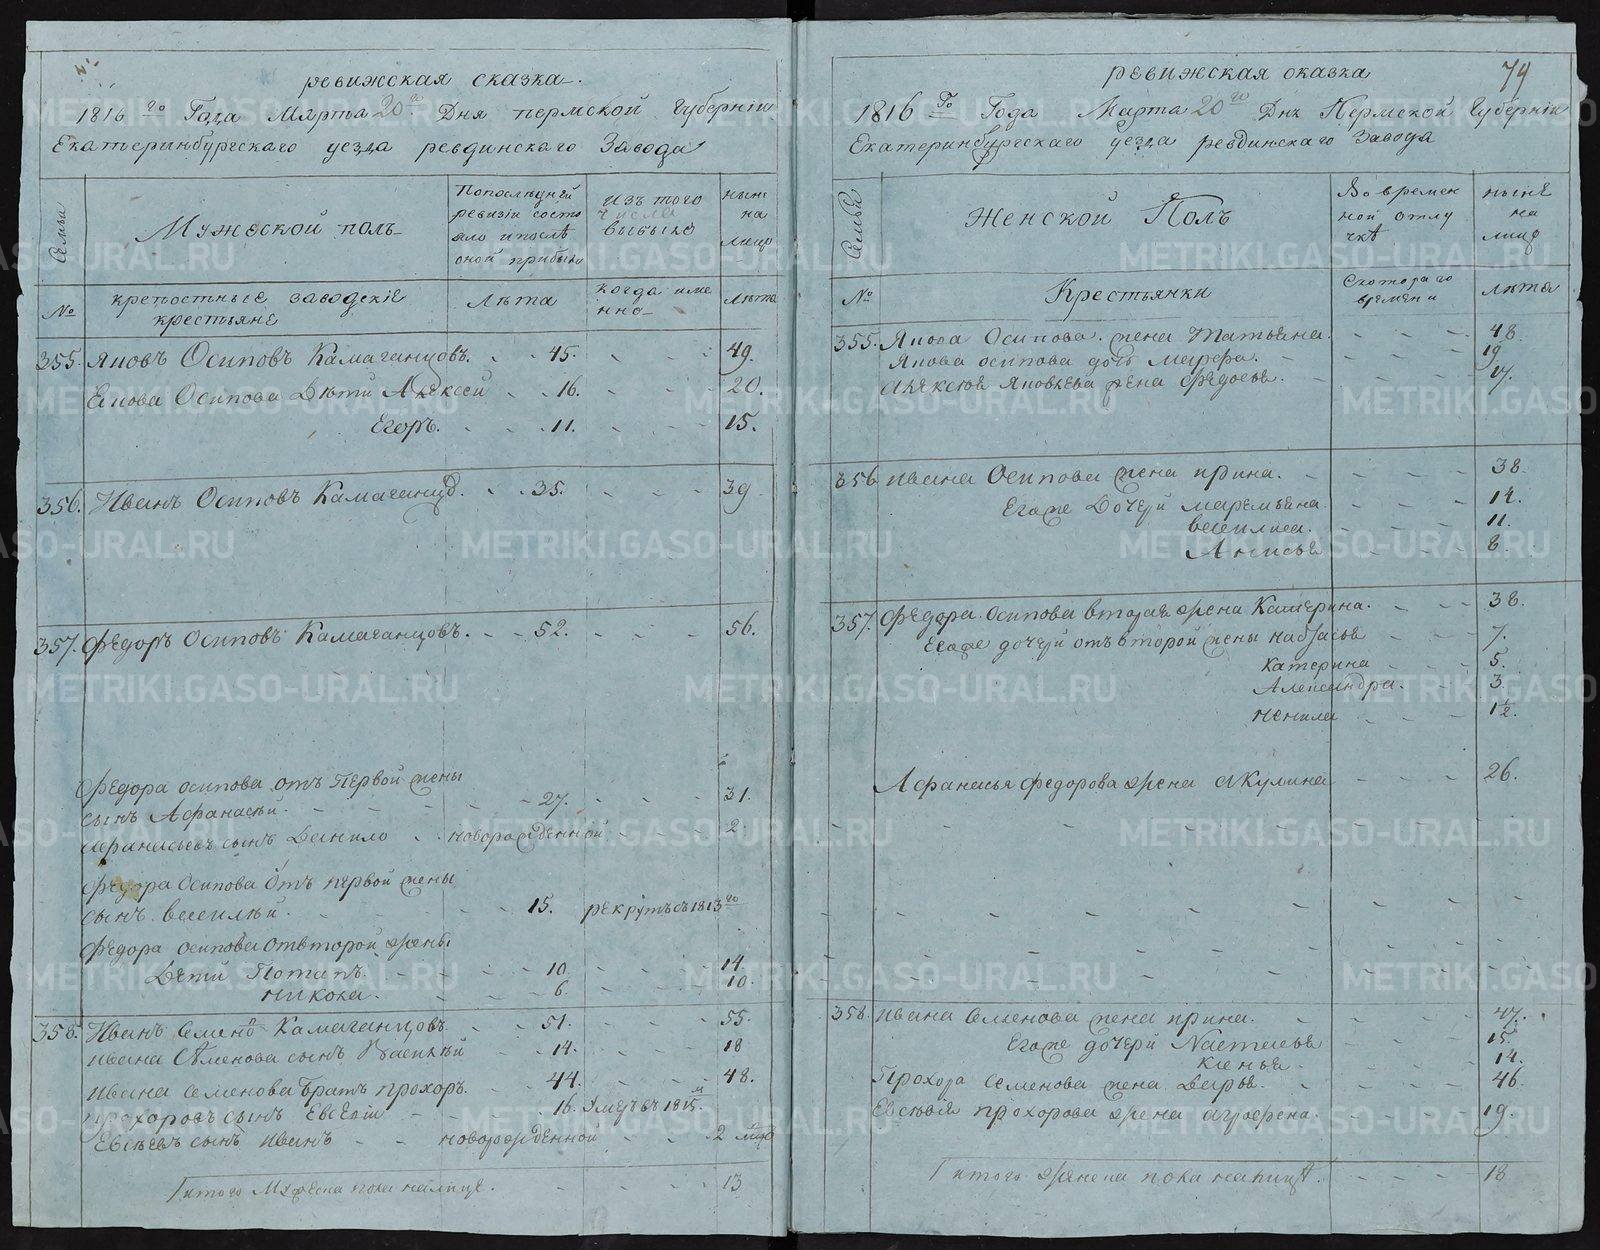 ревижская сказка.
1816 го Года Марта 20 го Дня пермской Губернiи
Екатеринбургскаго уезда ревдинскаго Завода
Семьи
Мужеской полъ
Попоследней ревизiи состояло ипосле оной прибыло
Изъ того числа выбыло
ныне на лицо
№
крепостные заводскiе крестьяне
Лѣта
когда имянно
Лѣта
355. Яковъ Осиповъ Камаганцовъ. - - 45. - - - 49.
Якова Осипова Дѣти Алексей - - 16. - - - 20.
Егоръ. - - 11. - - - 15.
356. Иванъ Осиповъ Камаганцо. - - 35. - - - 39.
357. Федоръ Осиповъ Камаганцовъ. - - 52. - - - 56.
Федора осипова отъ Первой жены
сынъ Афанасей - - - 27. - - - 31.
Афанасьевъ сынъ Данило - - новорожденной - - 2.
Федора Осипова отъ первой жены
сынъ василей. - - 15. рекрутъ съ 1813 го
Федора осипова отвторой жены
Дети Потапъ. - - 10 - - - 14.
никола. - - 6. - - - 10.
358. Иванъ Семено Камаганцовъ. - - 51. - - - 55.
ивана Семенова сынъ Василей - - 14. - - - 18
ивана Семенова братъ прохоръ. - - 44. - - - 48.
прохоровъ сынъ Евсей - - 16. Умеръ въ 1815 м
Евсеевъ сынъ иванъ - - новорожденной - - 2 мца
итого Мужеска пола налице. - - - 13
ревижская сказка
79
1816 го Года Марта 20 го Дня Пермской Губернiи
Екатеринбургскаго уезда ревдинскаго Завода
Семьи
Женской Полъ
Во временной отлучке
ныне на лицо
№
Крестьянки
Скотораго времени
лѣта
355. Якова Осипова. жена Татьяна. - - - 48.
Якова осипова дочь марфа. - - - 19
Алексея Яковлева жена федосья. - - - 17.
356 ивана Осипова жена ирина. - - - 38.
Егоже Дочери маремьяна - - - 14.
василиса. - - - 11.
Анисья - - - 8.
357. Федора. Осипова вторая жена Катерина. - - - 38.
Егоже дочери отъ второй жены настасья - - - 7.
катерина - - - 5.
Александра. - - - 3.
ненила - - - 1½.
Афанасья федорова жена Акулина - - - 26.
358. ивана Семенова жена ирина. - - - 47.
Егоже дочери Настасья - - - 15.
ксенья - - - 14.
Прохора Семенова жена Дарья. - - - 46.
Евсевья прохорова жена агрофена. - - - 19.
итого женска пола налице. - - - 18
METRIKI.GASO-URAL.RU